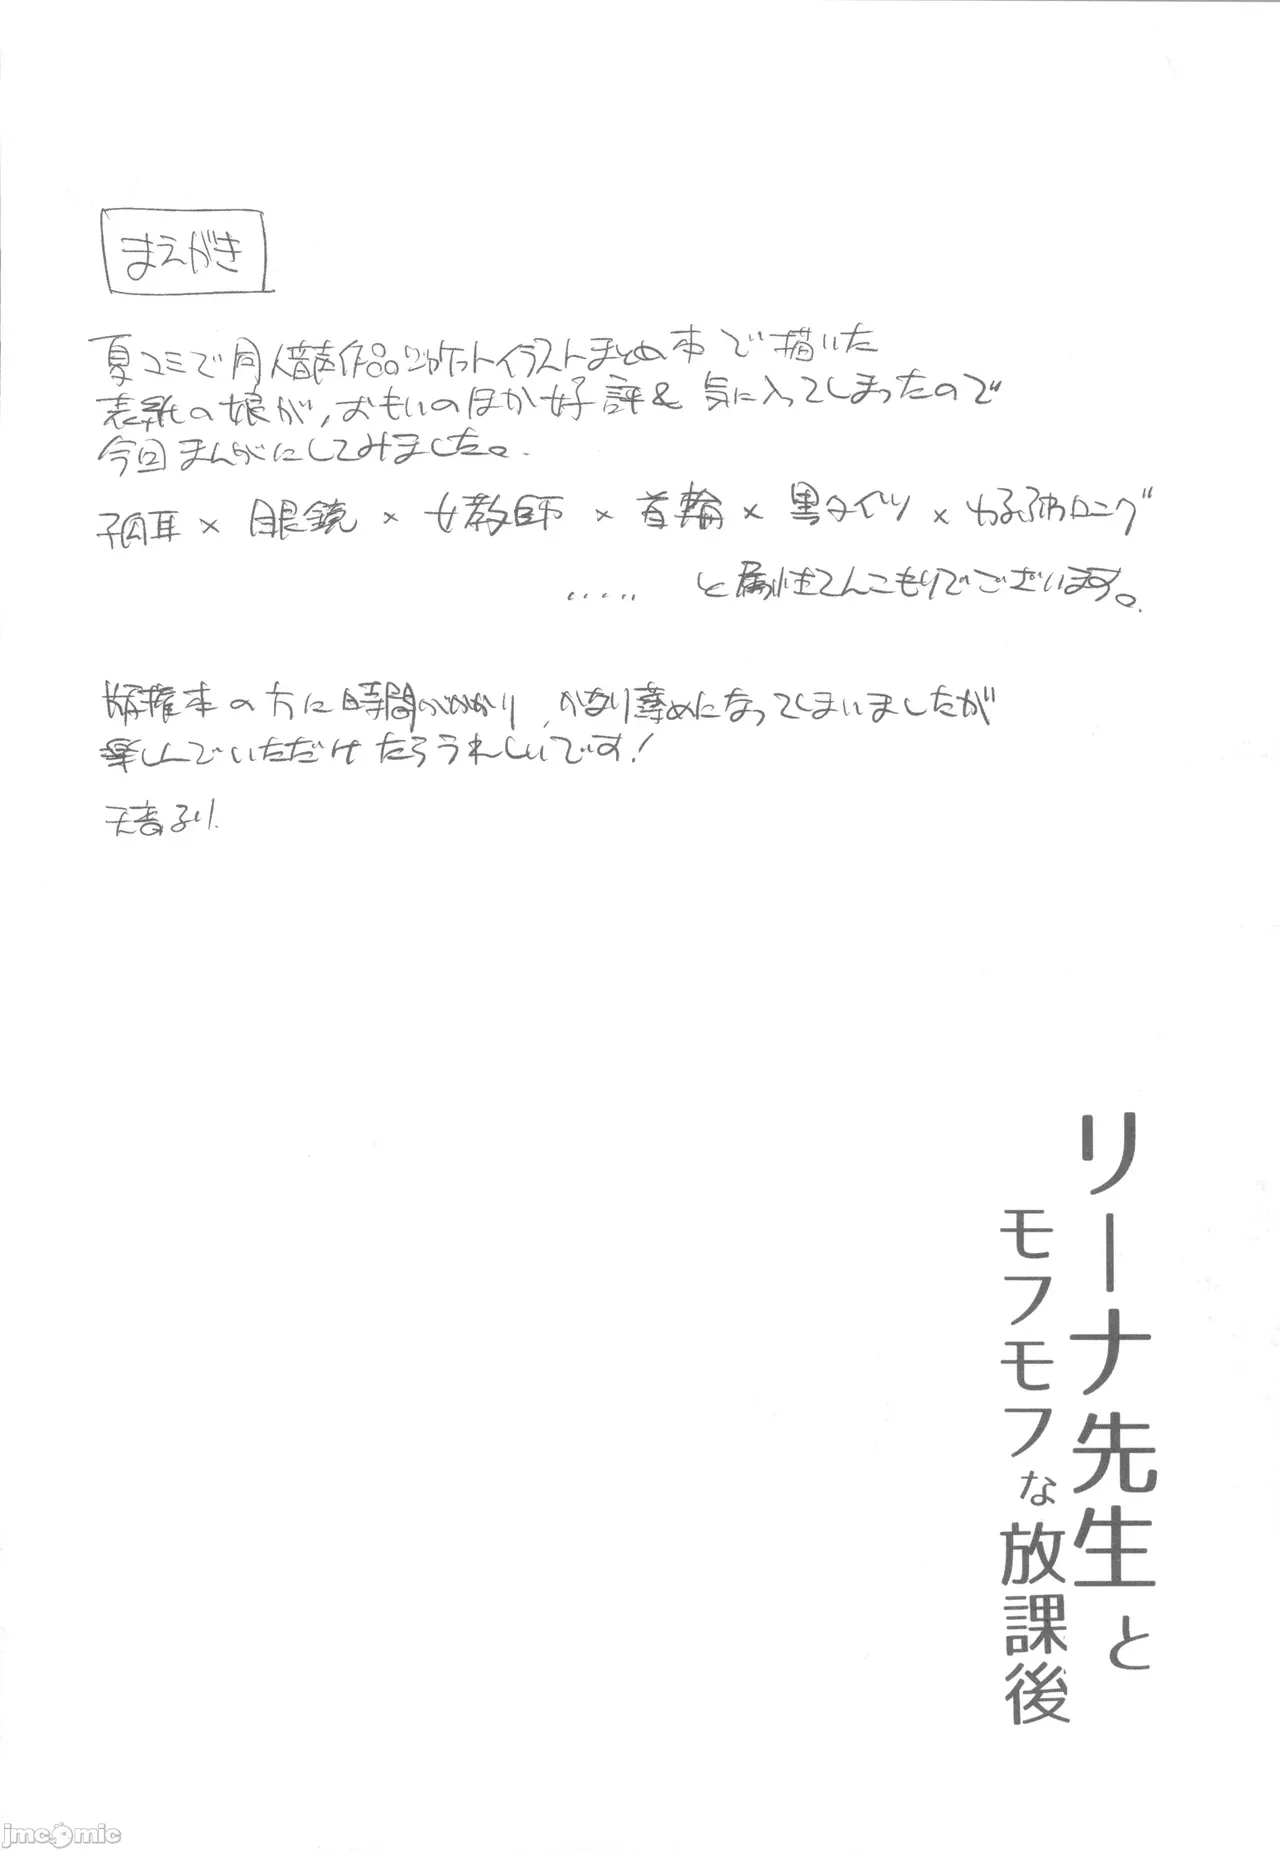 まえがき
夏コミで同人音声作品ジャケットイラストまとめ本で描いた
表紙の娘が、おもいのほか好評& 気に入ってしまったので
今回まんがにしてみました。
狐耳 × 眼鏡 × 女教師 × 首輪 × 黒タイツ × ゆるふわロング
..... と属性てんこもりでございます。
版権本の方に時間がかかり、かなり薄めになってしまいましたが
楽しんでいただけたらうれしいです!
天音るり
リーナ先生と
モフモフな放課後
jmcomic